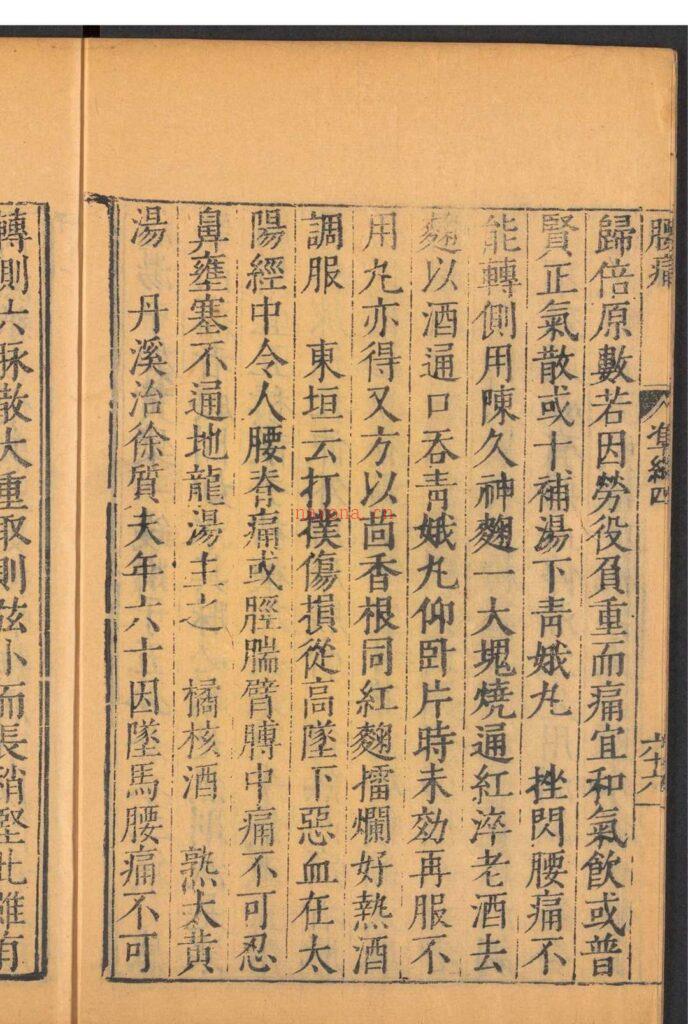 腰痛 凖繩四 六十六
歸倍原數若因勞役負重而痛宜和氣飲或普
賢正氣散或十補湯下靑娥丸 挫閃腰痛不
能轉側用陳久神麯一大塊燒通紅淬老酒去
麯以酒通口吞靑娥丸仰臥片時未効再服不
用丸亦得又方以茴香根同紅麯擂爛好熱酒
調服 東垣云打撲傷損從高墜下惡血在太
陽經中令人腰脊痛或脛腨臂膊中痛不可忍
鼻壅塞不通地龍湯主之 橘核酒 熟大黃
湯 丹溪治徐質夫年六十因墜馬腰痛不可
轉側六脉散大重取則弦小而長稍堅此雖有